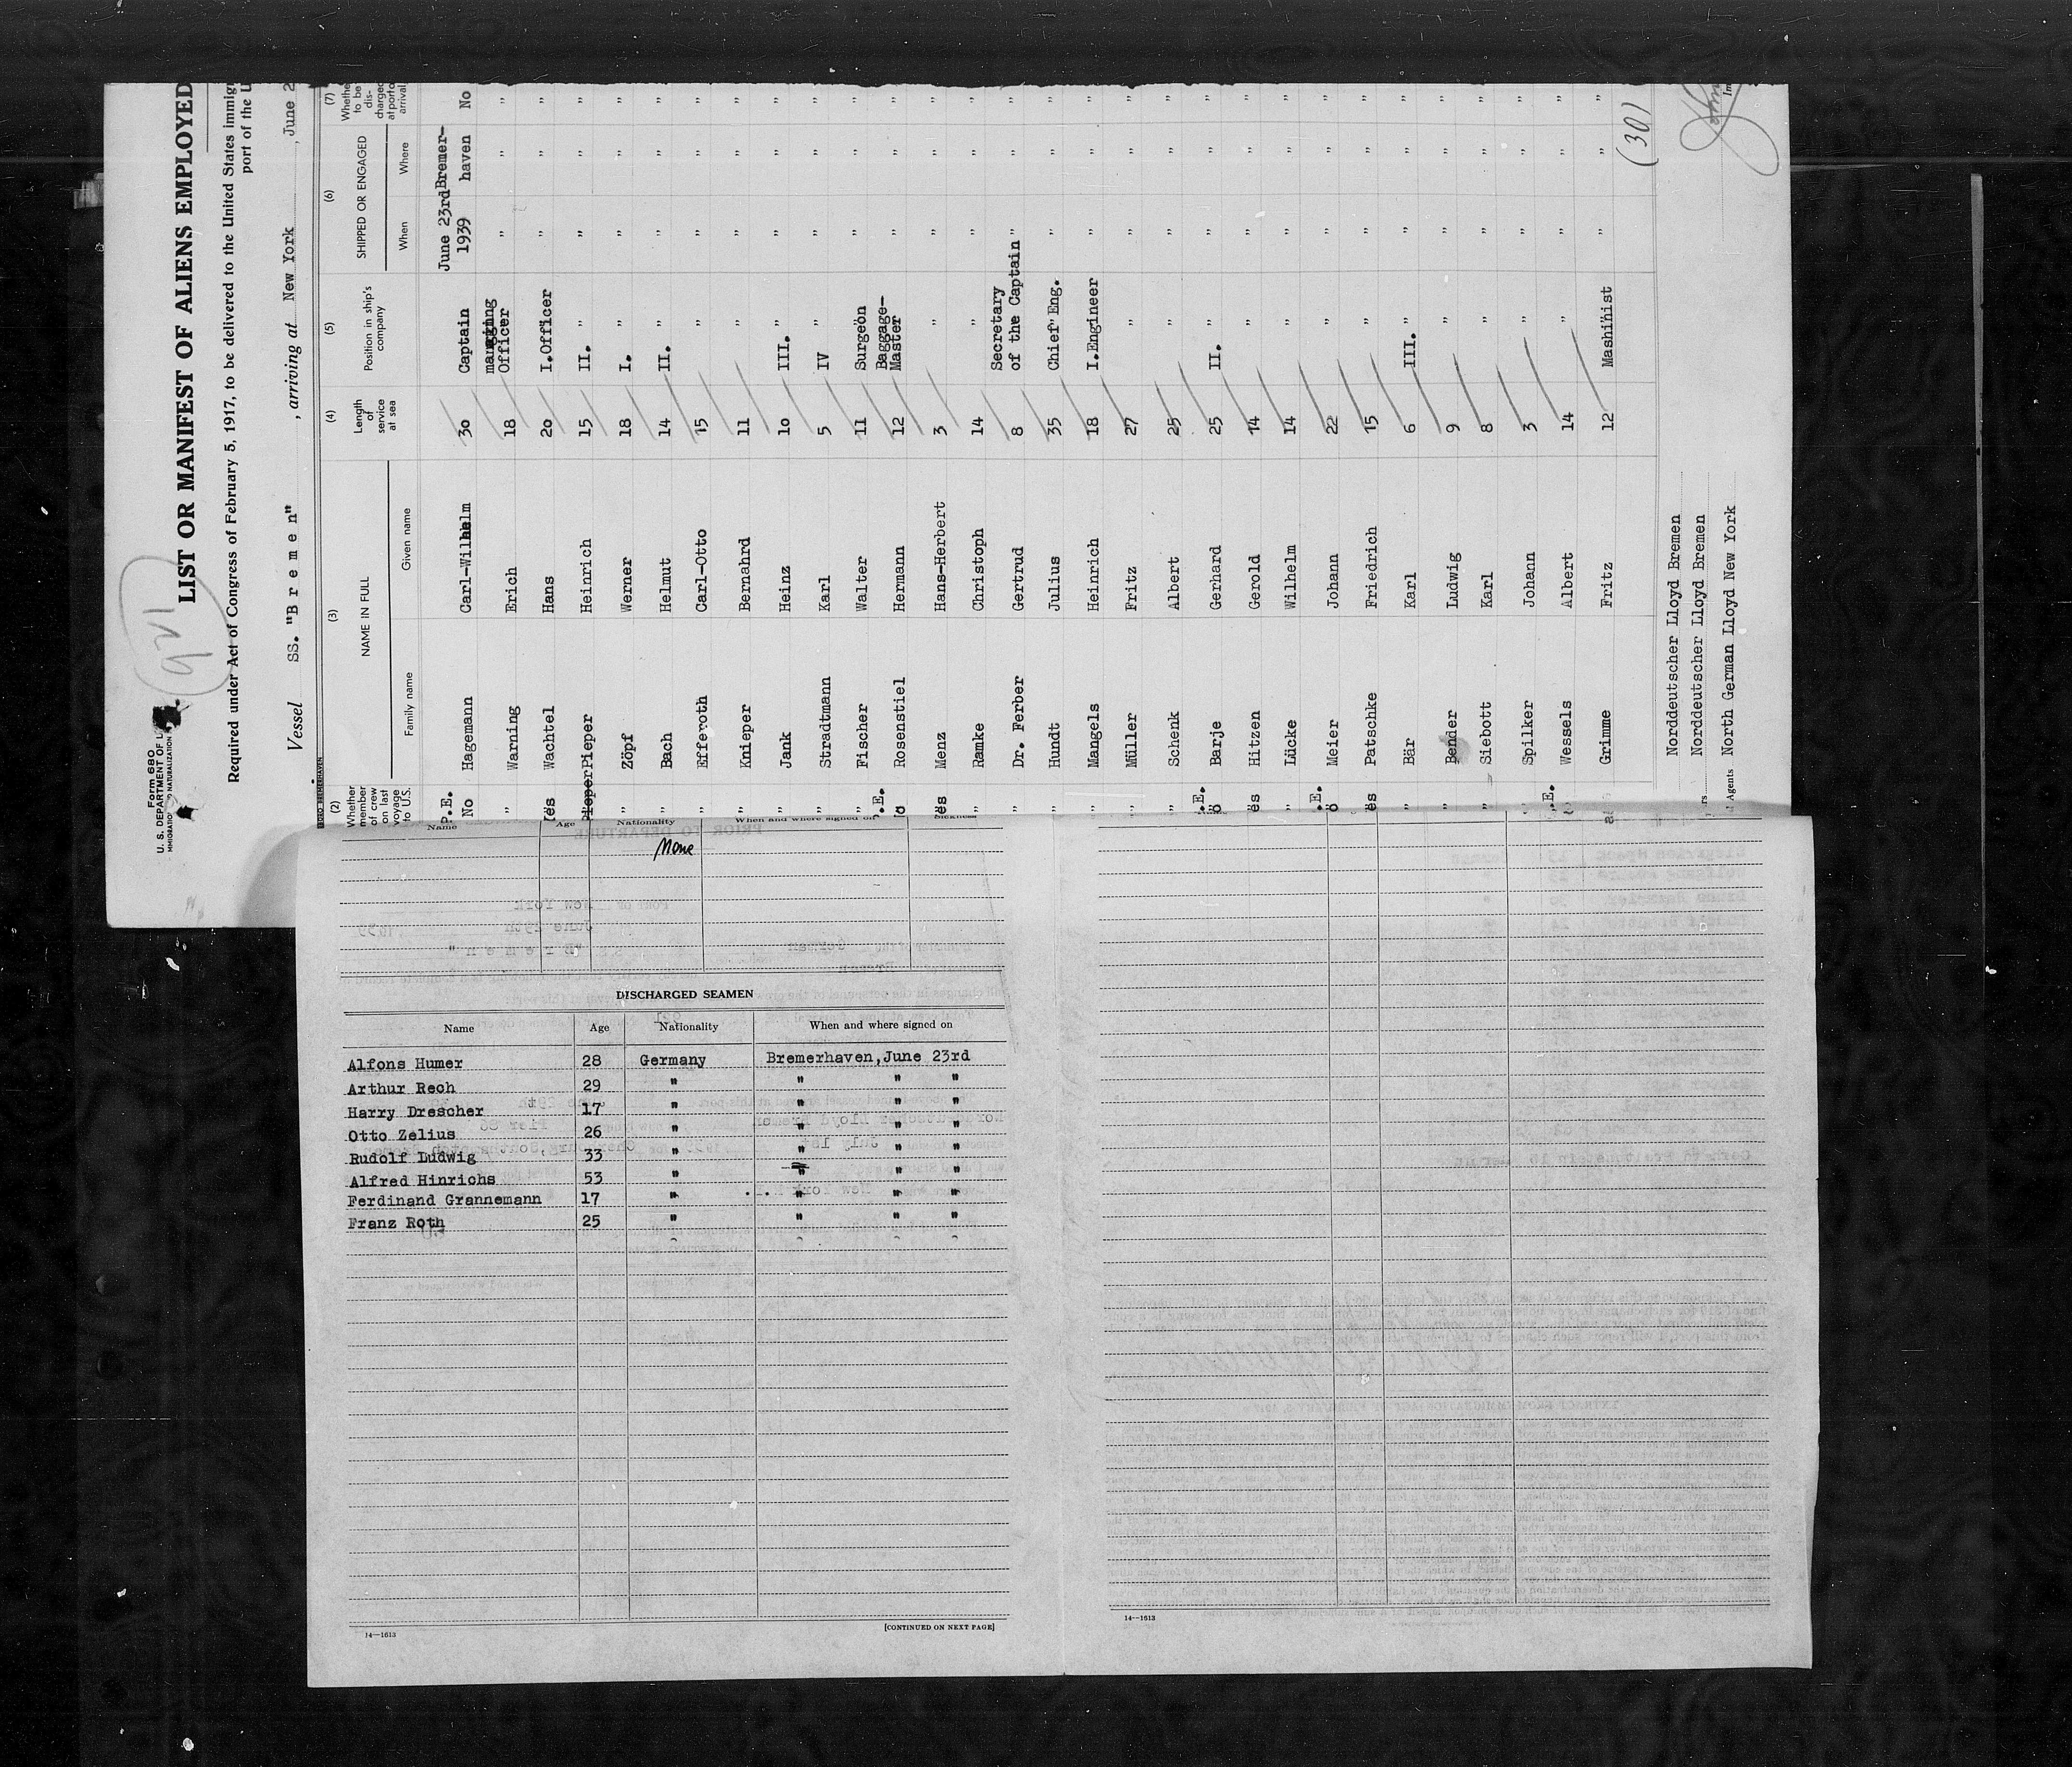 Form 680
U. S. DEPARTMENT OF L
IMMIGRATION AND NATURALIZATION
921
LIST OR MANIFEST OF ALIENS EMPLOYED
Required under Act of Congress of February 5, 1917, to be delivered to the United States immig
port of the U
Vessel SS. "B r e m e n" , arriving at New York , June 2
(2) (3) (4) (5) (6) (7)
Whether member of crew on last voyage to U.S. NAME IN FULL Length of service at sea Position in ship's company SHIPPED OR ENGAGED Whethe to be dis- charged at port o arrival
Family name Given name When Where
P.E. June 23rd Bremer-
No Hagemann Carl-Wilhelm 30 Captain 1939 haven No
" Warning Erich 18 managing Officer " " "
Yes Wachtel Hans 20 I.Officer " " "
Pieper Pieper Heinrich 15 II. " " " "
" Zöpf Werner 18 I. " " " "
" Bach Helmut 14 II. " " " "
" Efferoth Carl-Otto 15 " " " "
" Knieper Bernahrd 11 " " " "
" Jank Heinz 10 III. " " " "
" Stradtmann Karl 5 IV " " " "
" Fischer Walter 11 Surgeon " " "
P.E. Rosenstiel Hermann 12 Baggage- Master " " "
es Menz Hans-Herbert 3 " " " "
" Ramke Christoph 14 " " " "
" Dr. Ferber Gertrud 8 Secretary of the Captain " " "
" Hundt Julius 35 Chief Eng. " " "
" Mangels Heinrich 18 I.Engineer " " "
" Müller Fritz 27 " " " "
" Schenk Albert 25 " " " "
.E. o Barje Gerhard 25 II. " " " "
es Hitzen Gerold 14 " " " "
" Lücke Wilhelm 14 " " " "
.E. o Meier Johann 22 " " " "
es Patschke Friedrich 15 " " " "
" Bär Karl 6 III. " " " "
" Bender Ludwig 9 " " " "
" Siebott Karl 8 " " " "
" Spilker Johann 3 " " " "
.E. Wessels Albert 14 " " " "
Grimme Fritz 12 Mashinist " " "
(30)
Norddeutscher Lloyd Bremen
Norddeutscher Lloyd Bremen
Agents North German Lloyd New York
Name Age Nationality When and where signed on Sickness
None
DISCHARGED SEAMEN
Name Age Nationality When and where signed on
Alfons Humer 28 Germany Bremerhaven,June 23rd
Arthur Rech 29 " " " "
Harry Drescher 17 " " " "
Otto Zelius 26 " " " "
Rudolf Ludwig 33 " " " "
Alfred Hinrichs 53 " " " "
Ferdinand Grannemann 17 " " " "
Franz Roth 25 " " " "
14—1613
[CONTINUED ON NEXT PAGE]
14—1613